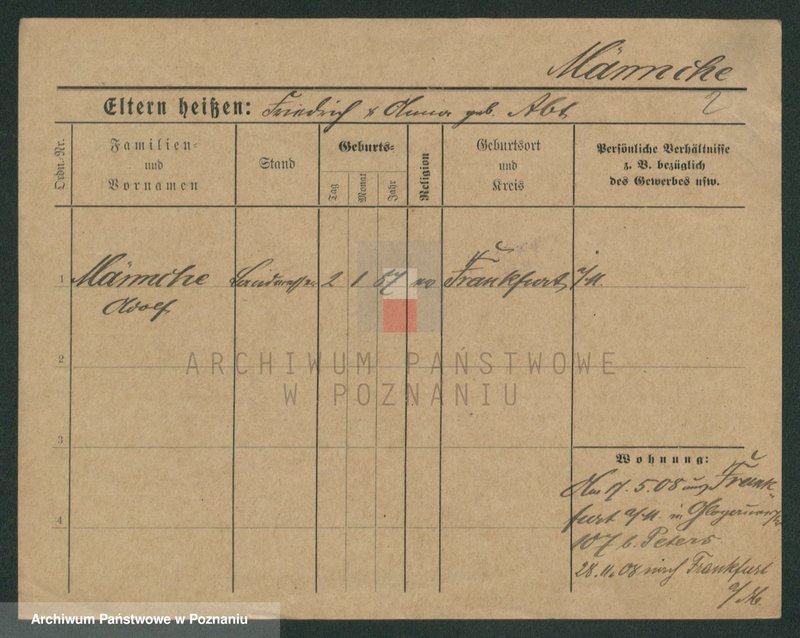 Männche
2
Eltern heißen: Friedrich & Anna geb. Abt
Ordn.-Nr.
Familien-
und
Vornamen
Stand
Geburts-
Tag
Monat
Jahr
Religion
Geburtsort
und
Kreis
Persönliche Verhältnisse
z. B. bezüglich
des Gewerbes usw.
1 Männche Landmesser 2 1 67 Frankfurt a/M.
Adolf
2
ARCHIWUM PAŃSTWOWE
W POZNANIU
3
Wohnung:
17.5.08 aus Frank-
furt a/M. in
4
107 b. Peters
28.11.08 nach Frankfurt
a/M.
Archiwum Państwowe w Poznaniu